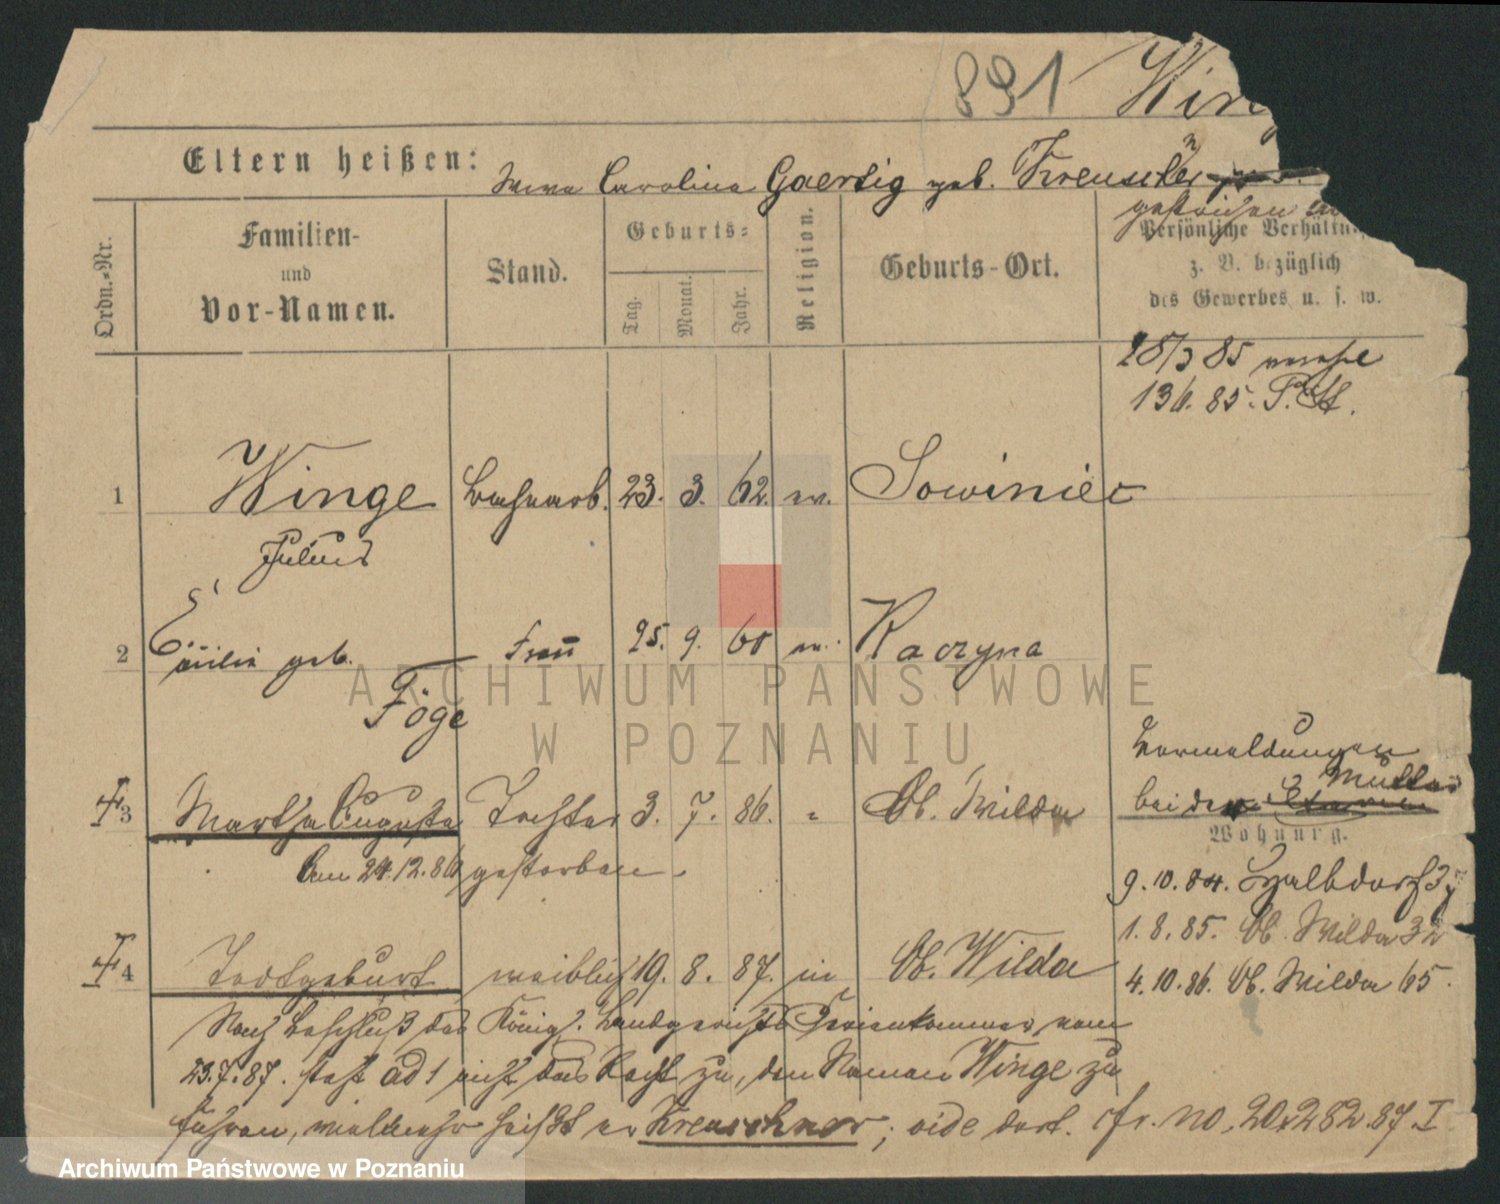 891 Win
Eltern heißen: Wwe Carolina Gaertig geb. Kreuschner
gestrichen
Ordn.-Nr.
Familien-
und
Vor-Namen.
Stand.
Geburts-
Tag. Monat. Jahr.
Religion.
Geburts-Ort.
Persönliche Verhältn
z. B. bezüglich
des Gewerbes u. s. w.
136. 85. P. St.
1 Winge Bahnarb. 23. 3. 62. ev. Sowiniec
Julius
2 Cäcilie geb. Frau 25. 9. 60 Raczyna
Föge
Vermeldungen
bei der Mutter
3 Martha Auguste Tochter 3. 7. 86. " Ob. Wilda
Wohnung.
am 24.12.86 gestorben.
9.10.84. Halbdorfs
1.8.85. Ob. Wilda 32
4 Todtgeburt weiblich 19. 8. 87. in Ob. Wilda
4.10.86. Ob. Wilda 65.
Nach Beschluß des Königl. Landgerichts Ferienkammer vom
23.7.87. steht ad 1 nicht das Recht zu, den Namen Winge zu
führen, vielmehr heißt er Kreuschner; vide dort. fr. no. 20282.87 I.
ARCHIWUM PAŃSTWOWE
W POZNANIU
Archiwum Państwowe w Poznaniu